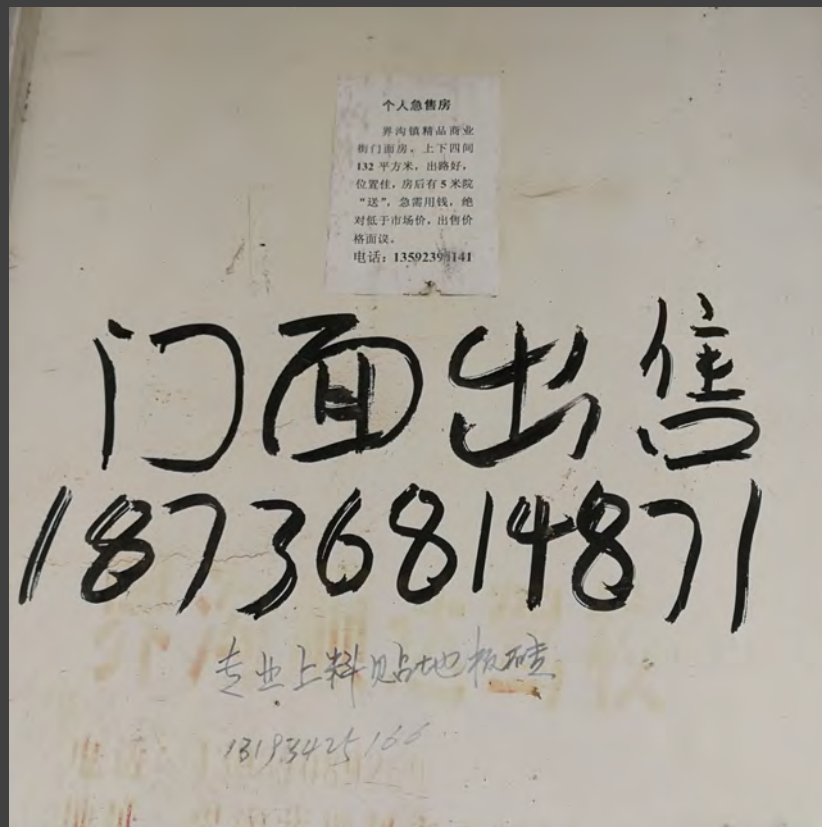 个人急售房
界沟镇精品商业
街门面房，上下四间
132 平方米，出路好，
位置佳，房后有 5 米院
“送”，急需用钱，绝
对低于市场价，出售价
格面议。
电话：
门面出售
18736814871
专业上料贴地板砖
13193425166